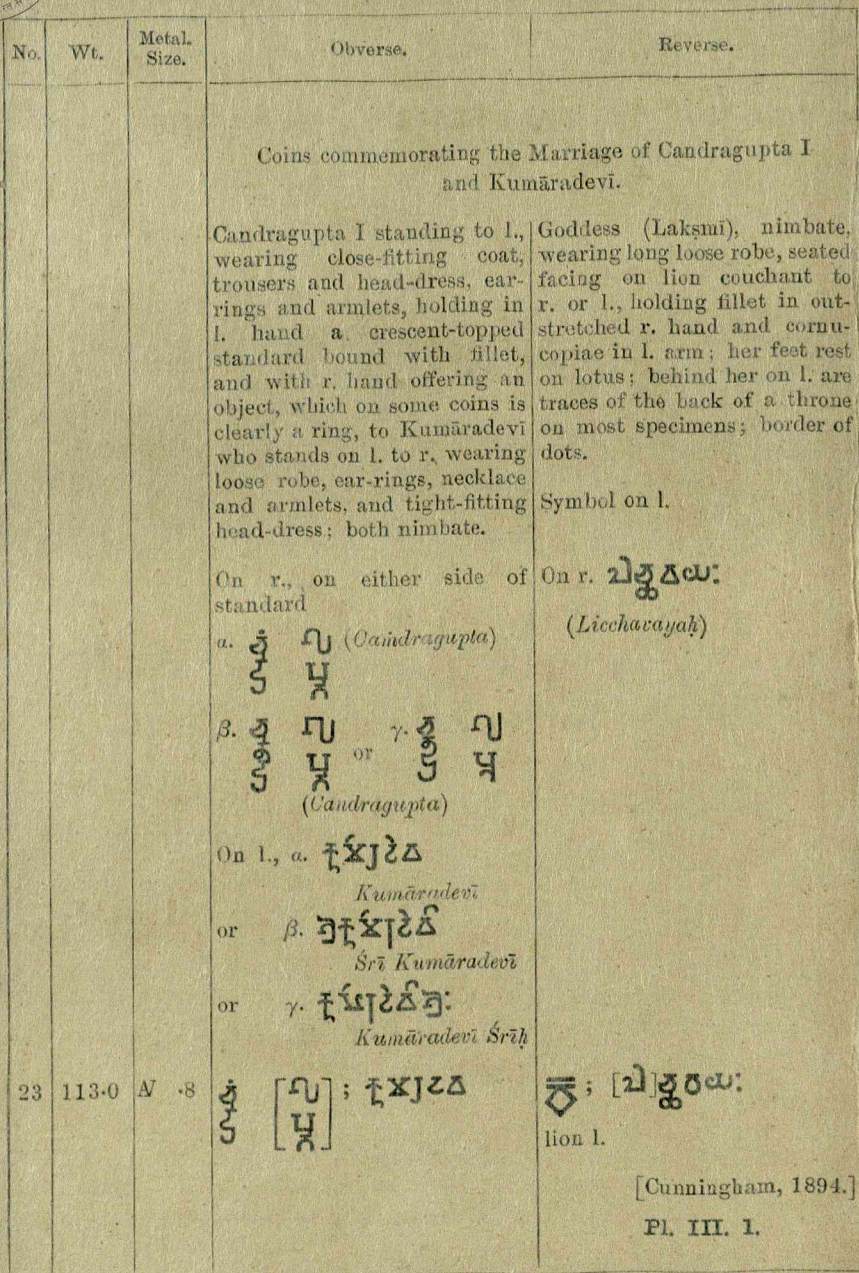 No. Wt. Metal. Size. Obverse. Reverse.
Coins commemorating the Marriage of Candragupta I
and Kumāradevī.
Candragupta I standing to l.,
wearing close-fitting coat,
trousers and head-dress, ear-
rings and armlets, holding in
l. hand a crescent-topped
standard bound with fillet,
and with r. hand offering an
object, which on some coins is
clearly a ring, to Kumāradevī
who stands on l. to r., wearing
loose robe, ear-rings, necklace
and armlets, and tight-fitting
head-dress; both nimbate.
On r., on either side of
standard
α. (Caṁdragupta)
β. or γ.
(Candragupta)
On l., α.
Kumāradevī
or β.
Śrī Kumāradevī
or γ.
Kumāradevī Śrīḥ
Goddess (Lakṣmī), nimbate,
wearing long loose robe, seated
facing on lion couchant to
r. or l., holding fillet in out-
stretched r. hand and cornu-
copiae in l. arm; her feet rest
on lotus; behind her on l. are
traces of the back of a throne
on most specimens; border of
dots.
Symbol on l.
On r.
(Licchavayaḥ)
23 113·0 N ·8
lion l.
[Cunningham, 1894.]
Pl. III. 1.